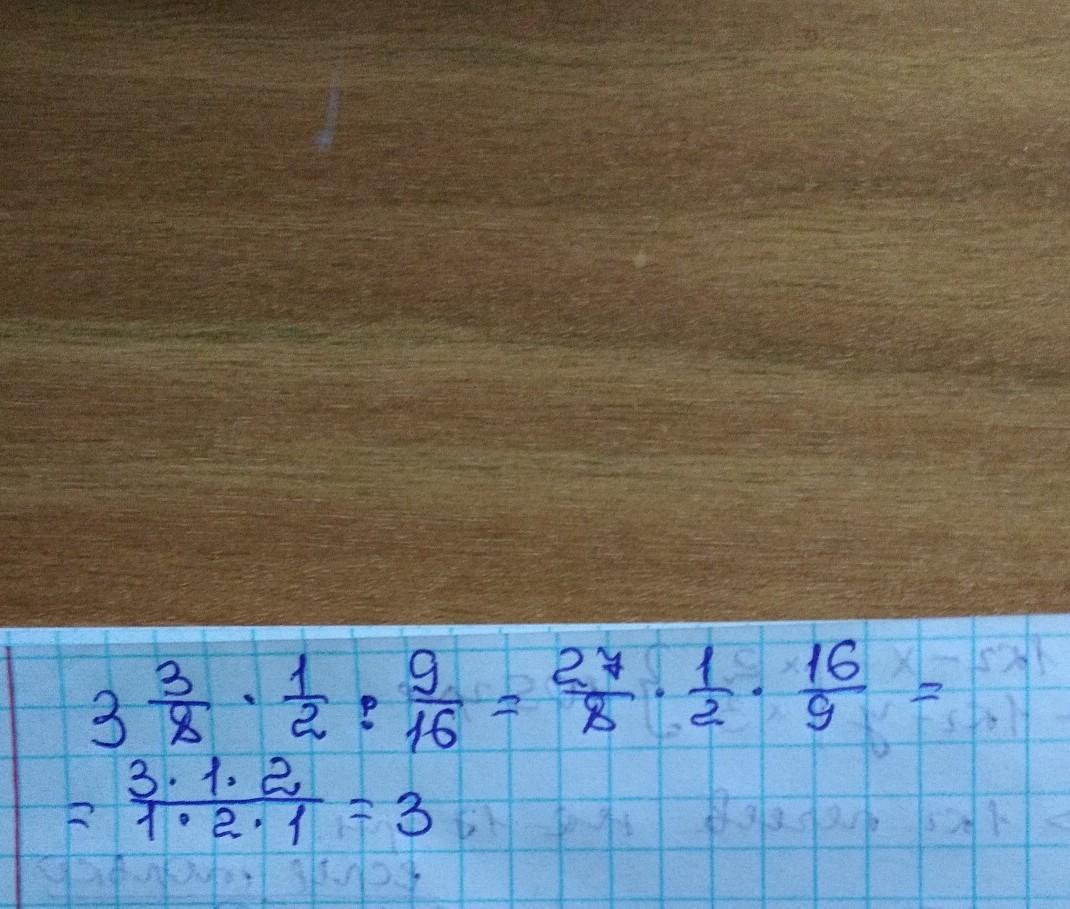 3 3/8 · 1/2 : 9/16 = 27/8 · 1/2 · 16/9 =
= 3·1·2/1·2·1 = 3